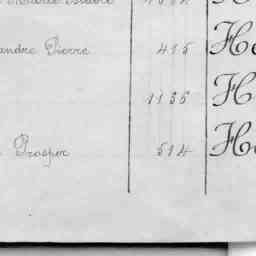 andre Pierre 415 He
1135 H
Prosper 514 He